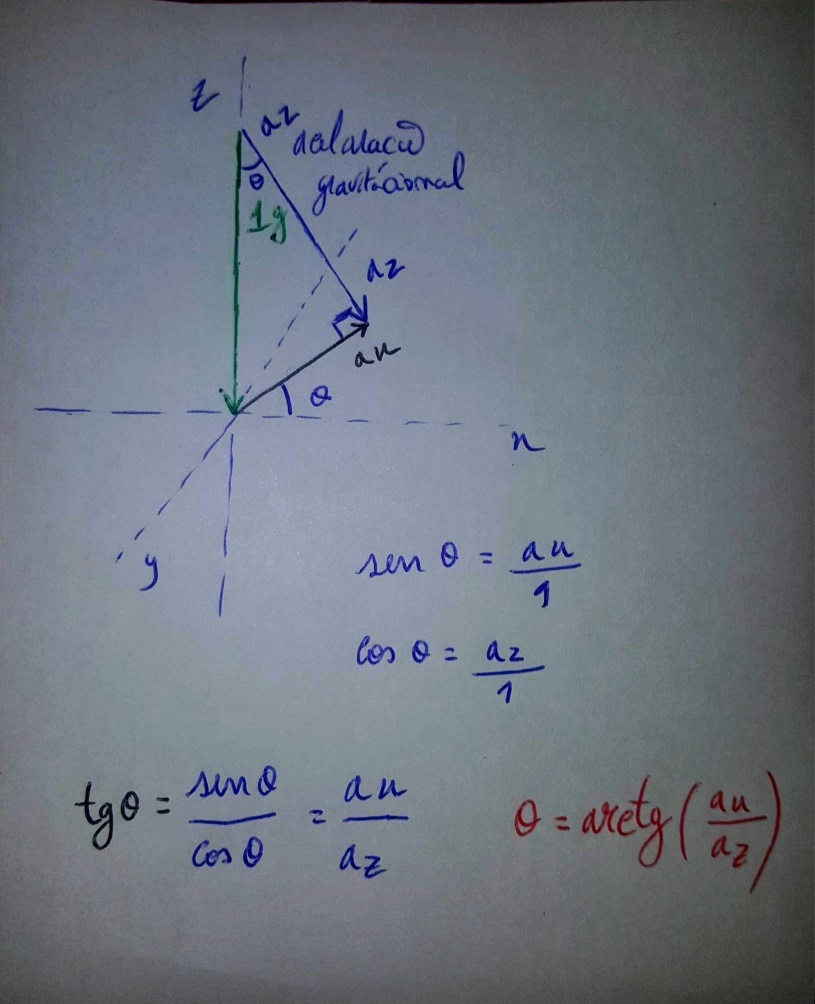 z
az
θ
gravitacional
1g
az
ax
θ
x
y
sen θ = ax / 1
cos θ = az / 1
tg θ = sen θ / cos θ = ax / az
θ = arctg (ax / az)